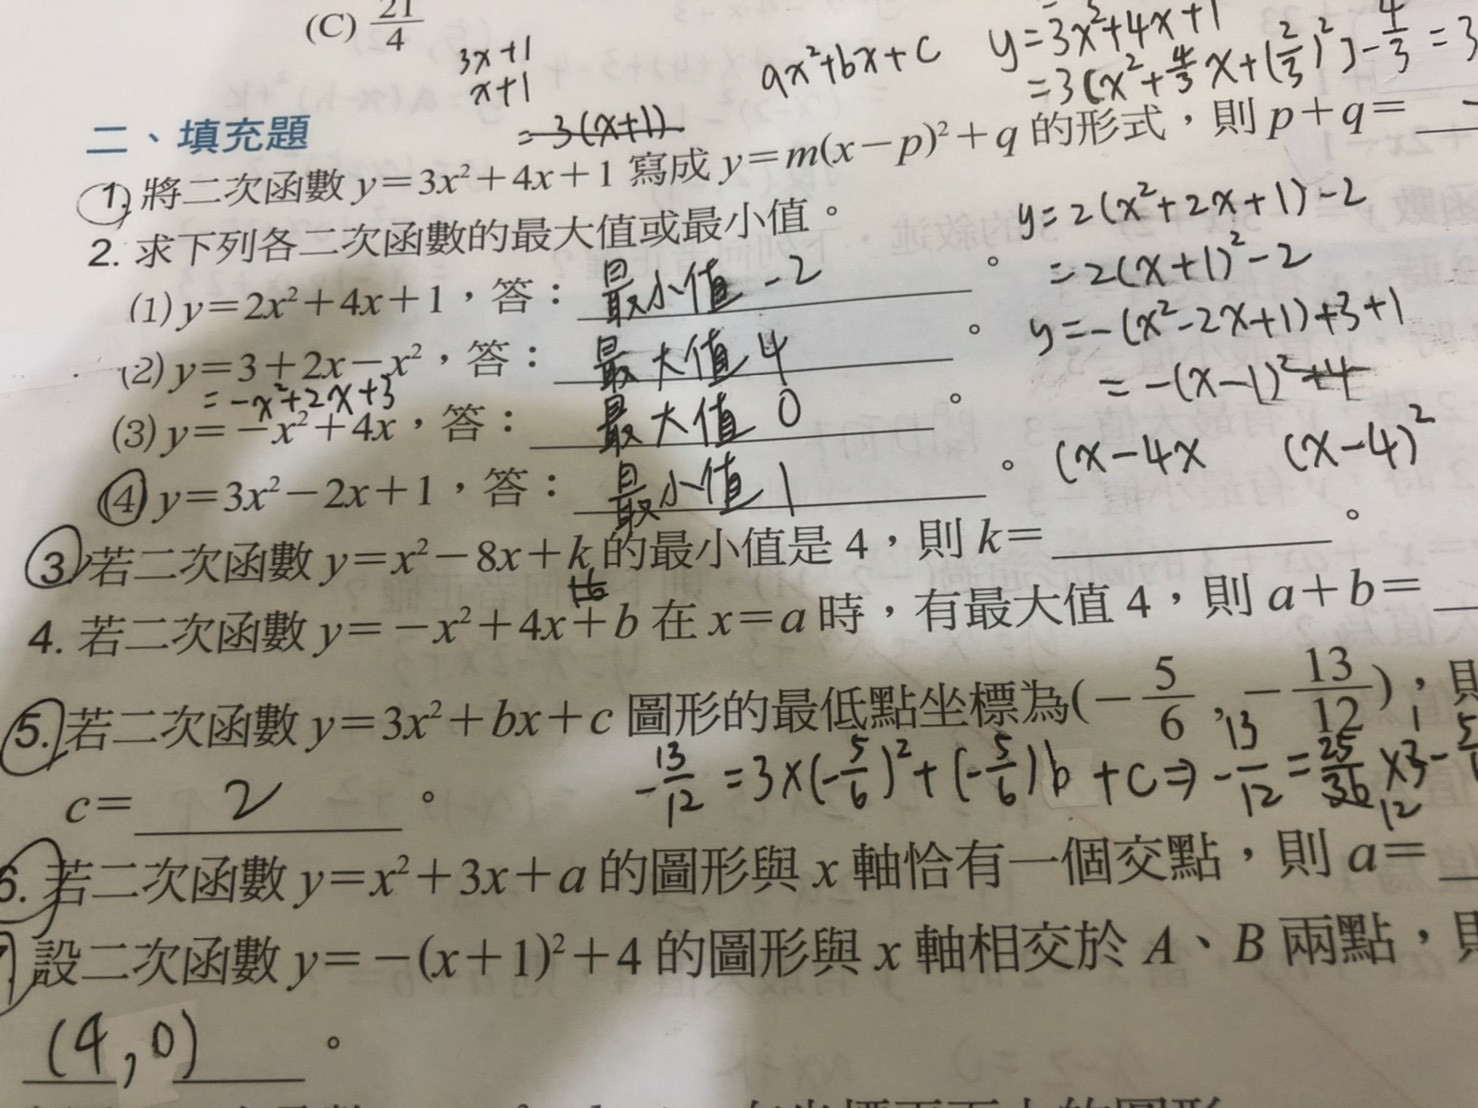 (C) 21/4
3x+1
x+1
ax²+bx+c
y=3x²+4x+1
=3(x²+4/3x+(2/3)²]-4/3=3
=3(x+1)
二、填充題
1. 將二次函數 y=3x²+4x+1 寫成 y=m(x-p)²+q 的形式，則 p+q=
2. 求下列各二次函數的最大值或最小值。
y=2(x²+2x+1)-2
(1) y=2x²+4x+1，答：最小值 -2。
=2(x+1)²-2
(2) y=3+2x-x²，答：最大值 4。
y=-(x²-2x+1)+3+1
=-x²+2x+3
=-(x-1)²+4
(3) y=-x²+4x，答：最大值 0。
(x-4x (x-4)²
(4) y=3x²-2x+1，答：最小值 1。
3. 若二次函數 y=x²-8x+k 的最小值是 4，則 k=。
4. 若二次函數 y=-x²+4x+b 在 x=a 時，有最大值 4，則 a+b=
5. 若二次函數 y=3x²+bx+c 圖形的最低點坐標為(-5/6，-13/12)，則
c=2。
-13/12=3×(-5/6)²+(-5/6)b+c⇒-13/12=25/36×3-5
6. 若二次函數 y=x²+3x+a 的圖形與 x 軸恰有一個交點，則 a=
設二次函數 y=-(x+1)²+4 的圖形與 x 軸相交於 A、B 兩點，則
(4,0)。